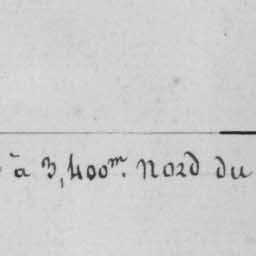 à 3,400m. Nord du